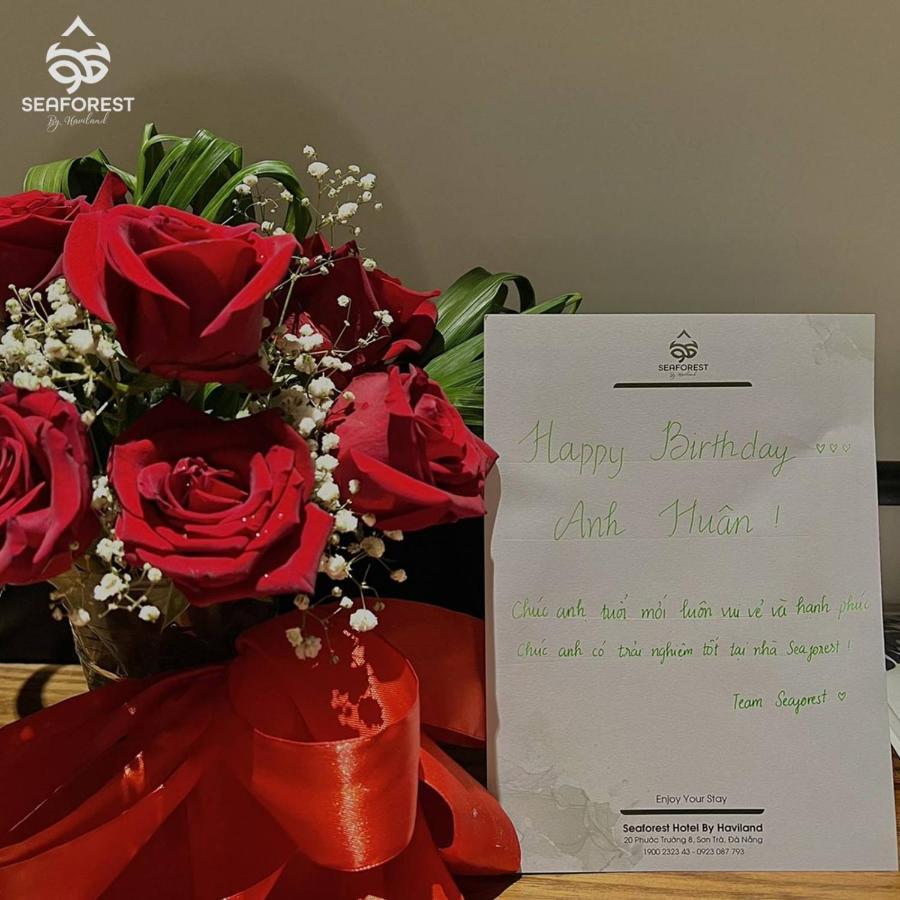 SEAFOREST
By Haviland
SEAFOREST
By Haviland
Happy Birthday ♡♡♡
Anh Huân !
Chúc anh tuổi mới luôn vui vẻ và hạnh phúc
Chúc anh có trải nghiệm tốt tại nhà Seaforest !
Team Seaforest ♡
Enjoy Your Stay
Seaforest Hotel By Haviland
20 Phước Trường 8, Sơn Trà, Đà Nẵng
1900 2323 43 - 0923 087 793